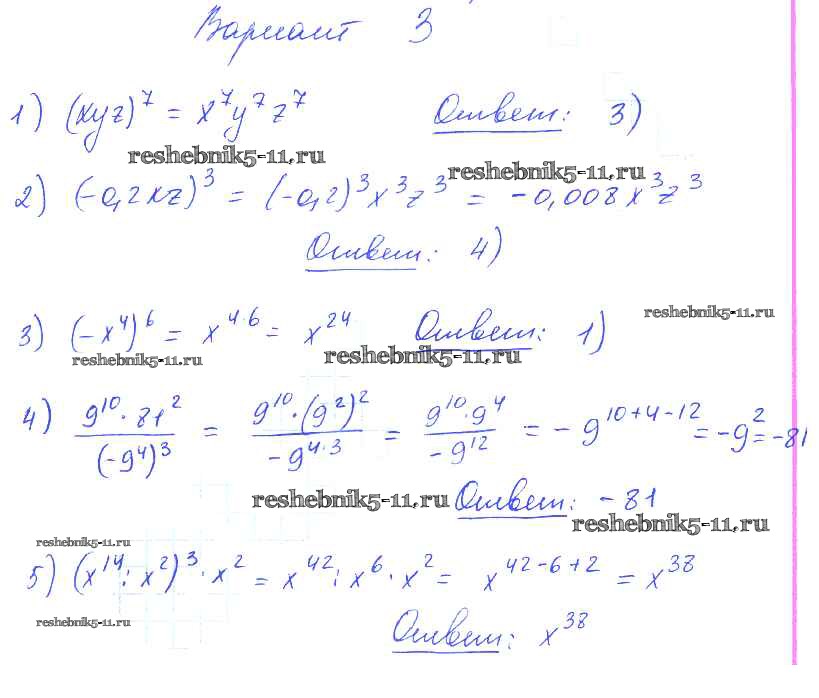 Вариант 3
1) (xyz)^7 = x^7 y^7 z^7 Ответ: 3)
reshebnik5-11.ru
reshebnik5-11.ru
2) (-0,2xz)^3 = (-0,2)^3 x^3 z^3 = -0,008 x^3 z^3
Ответ: 4)
reshebnik5-11.ru
3) (-x^4)^6 = x^{4·6} = x^{24} Ответ: 1)
reshebnik5-11.ru reshebnik5-11.ru
4) \frac{9^{10} · 81^2}{(-9^4)^3} = \frac{9^{10} · (9^2)^2}{-9^{4·3}} = \frac{9^{10} · 9^4}{-9^{12}} = -9^{10+4-12} = -9^2 = -81
reshebnik5-11.ru Ответ: -81
reshebnik5-11.ru
reshebnik5-11.ru
5) (x^{14} : x^2)^3 · x^2 = x^{42} : x^6 · x^2 = x^{42-6+2} = x^{38}
reshebnik5-11.ru
Ответ: x^{38}